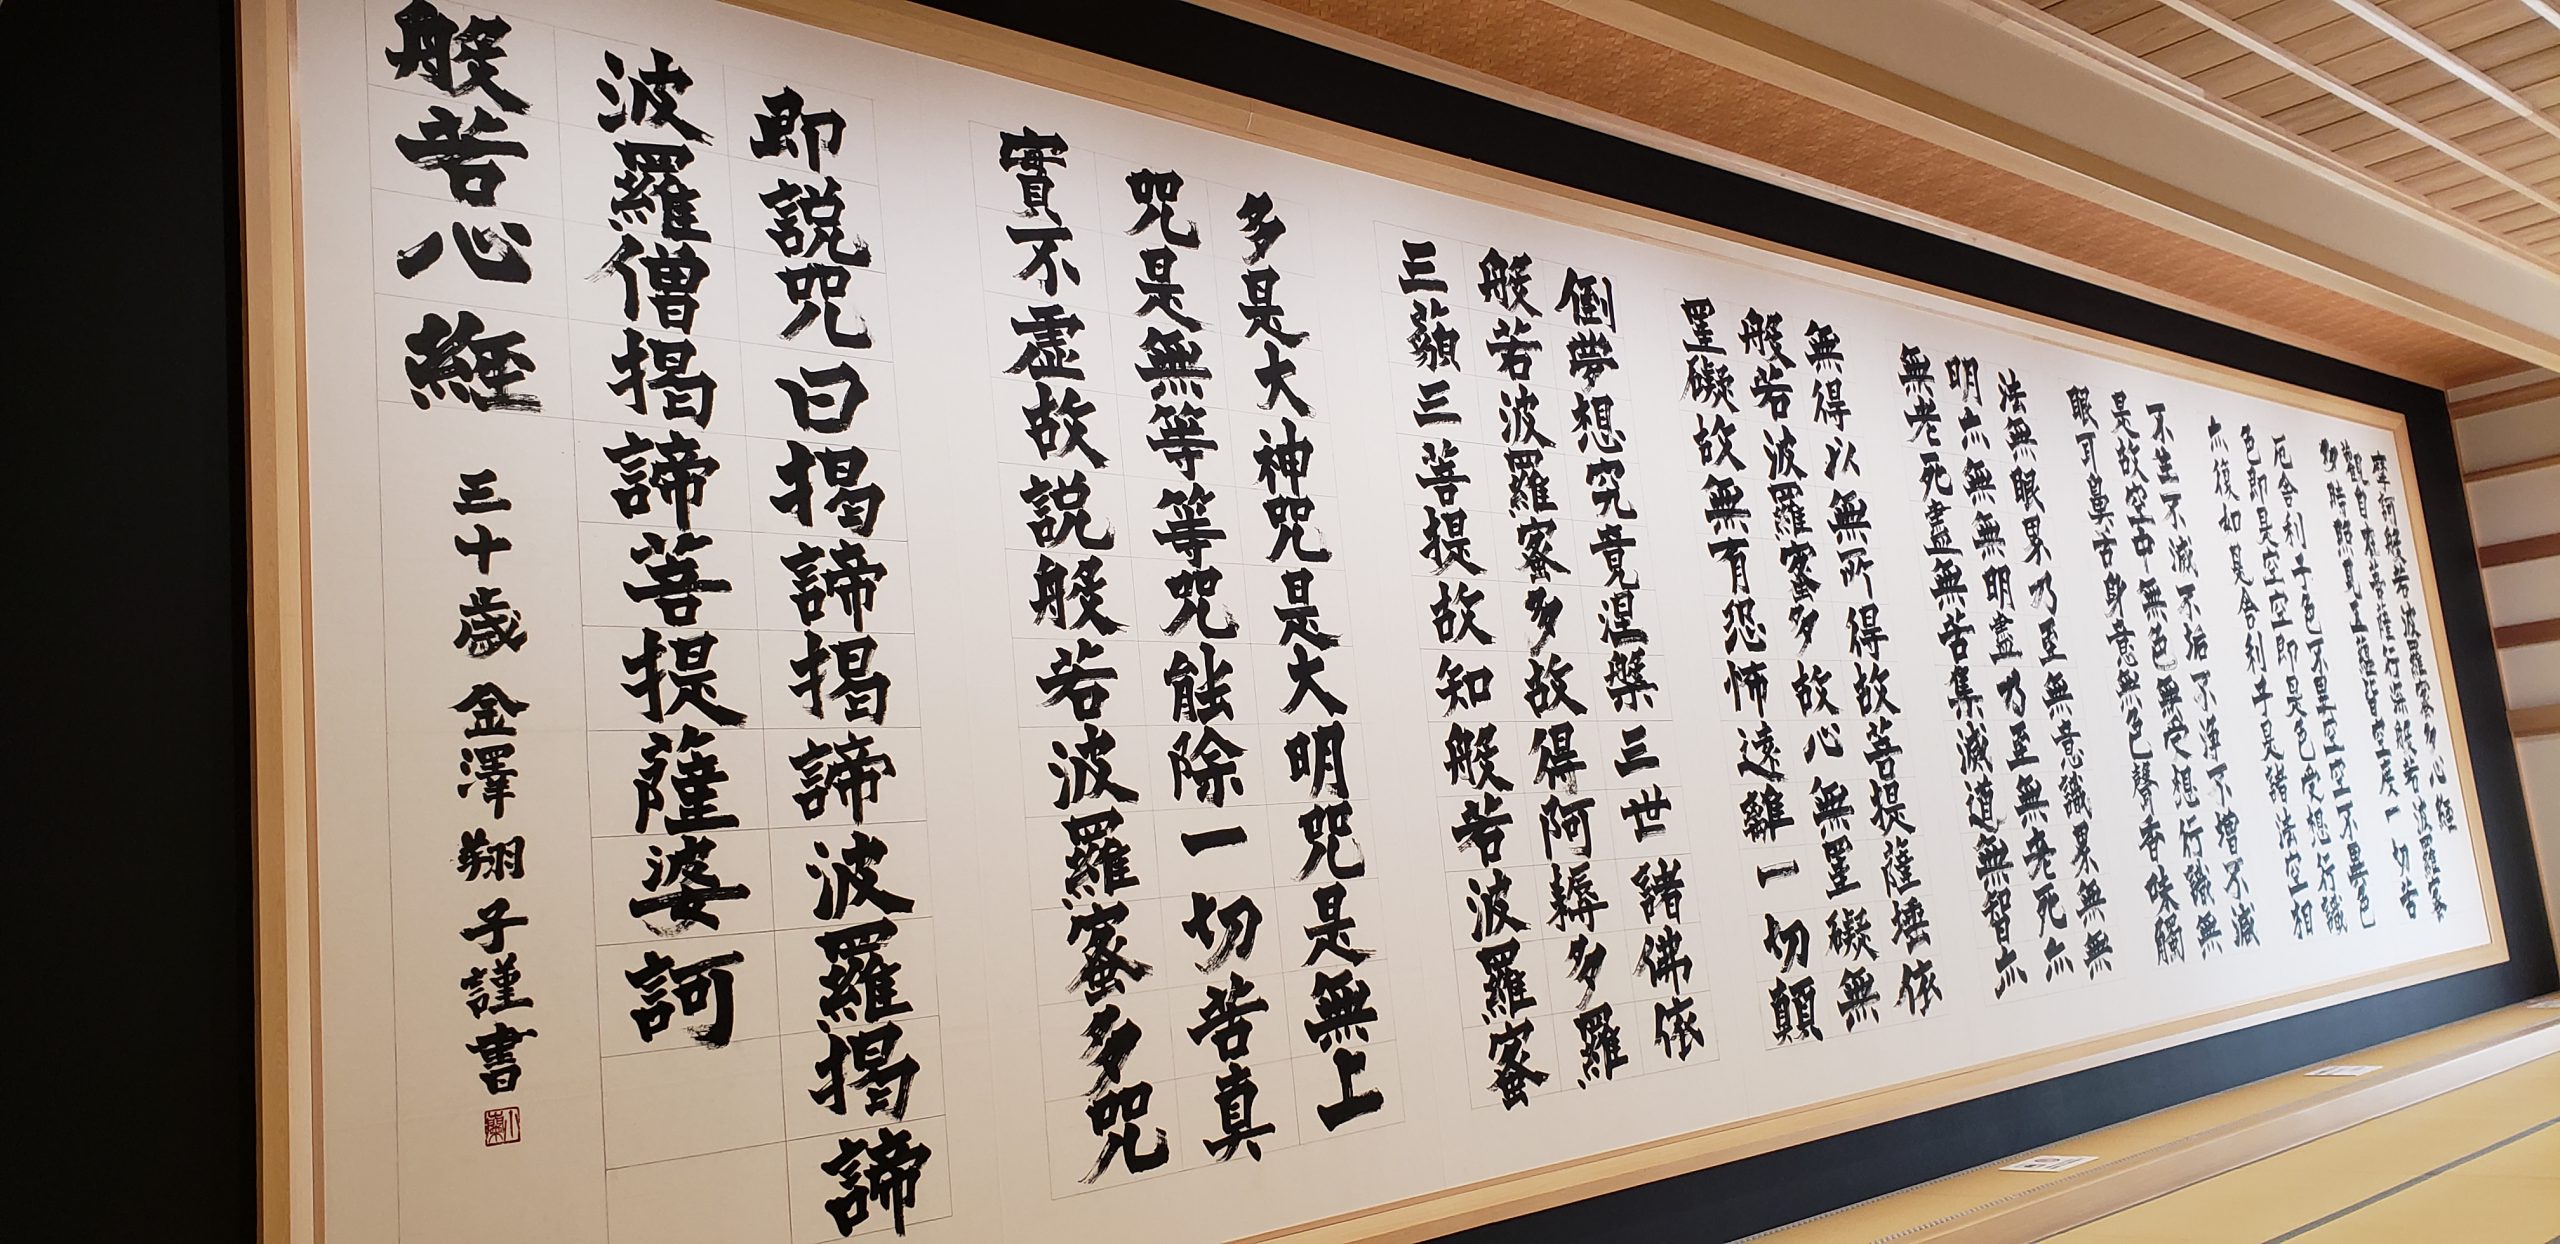 摩訶般若波羅蜜多心経
觀自在菩薩行深般若波羅蜜
多時照見五蘊皆空度一切苦
厄舍利子色不異空空不異色
色即是空空即是色受想行識
亦復如是舍利子是諸法空相
不生不滅不垢不浄不増不減
是故空中無色無受想行識無
眼耳鼻舌身意無色聲香味觸
法無眼界乃至無意識界無無
明亦無無明盡乃至無老死亦
無老死盡無苦集滅道無智亦
無得以無所得故菩提薩埵依
般若波羅蜜多故心無罣礙無
罣礙故無有恐怖遠離一切顛
倒夢想究竟涅槃三世諸佛依
般若波羅蜜多故得阿耨多羅
三藐三菩提故知般若波羅蜜
多是大神咒是大明咒是無上
咒是無等等咒能除一切苦真
實不虚故説般若波羅蜜多咒
即説咒曰揭諦揭諦波羅揭諦
波羅僧揭諦菩提薩婆訶
般若心経 三十歳 金澤翔子謹書